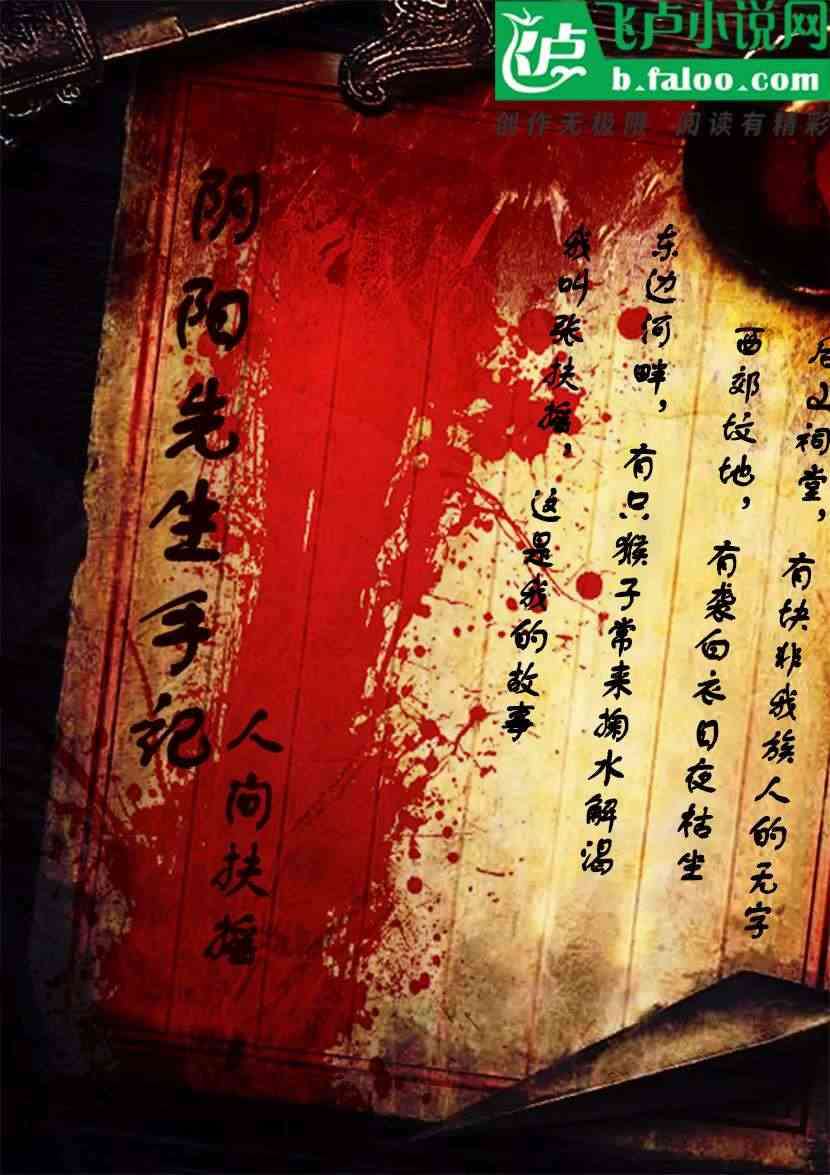 飞卢小说网
b.faloo.com
创作无极限 阅读有精彩
后山祠堂，有块非我族人的无字
西郊坟地，有袭白衣日夜枯坐
东边河畔，有只猴子常来掬水解渴
我叫张扶摇，这是我的故事
阴阳先生手记
人间扶摇